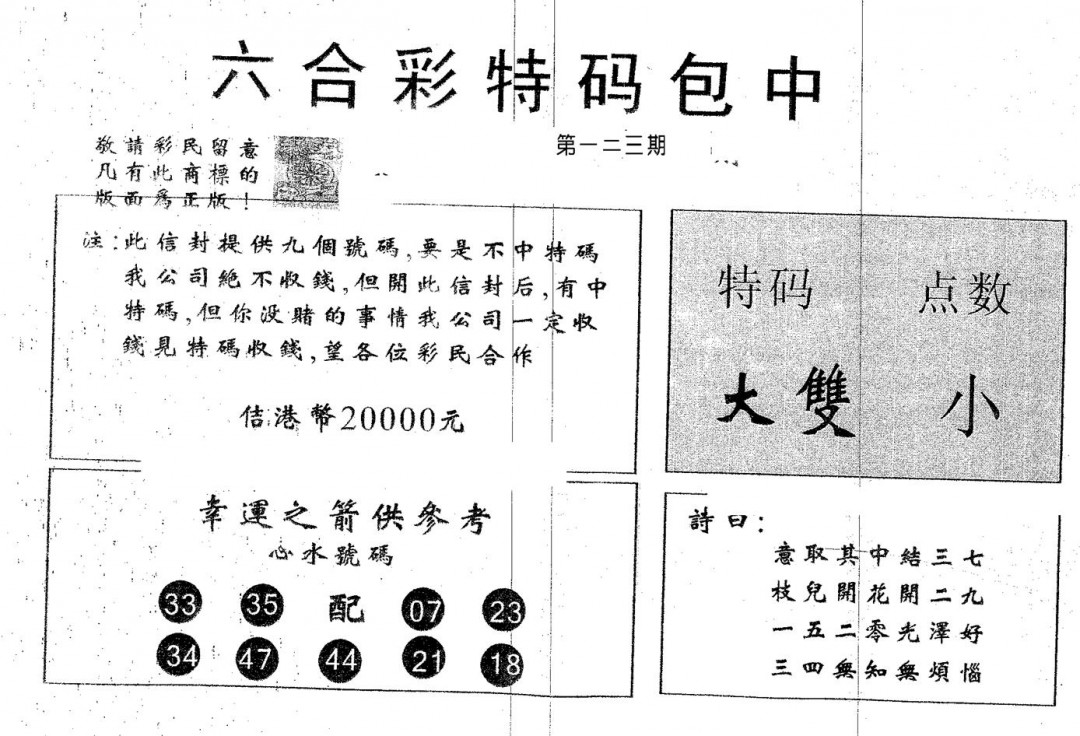 六合彩特码包中
第一二三期
敬請彩民留意
凡有此商標的
版面為正版！
注：此信封提供九個號碼，要是不中特碼
我公司絕不收錢，但開此信封后，有中
特碼，但你没賭的事情我公司一定收
錢見特碼收錢，望各位彩民合作
佶港幣20000元
特码 点数
大雙 小
幸運之箭供參考
心水號碼
33 35 配 07 23
34 47 44 21 18
詩曰：
意取其中結三七
枝兒開花開二九
一五二零光澤好
三四無知無煩惱